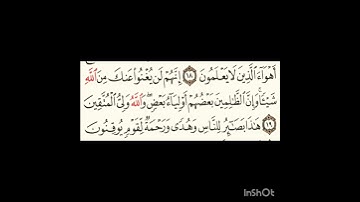 أَهْوَآءَ ٱلَّذِينَ لَا يَعْلَمُونَ ١٨ إِنَّهُمْ لَن يُغْنُوا۟ عَنكَ مِنَ ٱللَّهِ
شَيْـًٔا ۚ وَإِنَّ ٱلظَّـٰلِمِينَ بَعْضُهُمْ أَوْلِيَآءُ بَعْضٍ ۖ وَٱللَّهُ وَلِىُّ ٱلْمُتَّقِينَ
١٩ هَـٰذَا بَصَـٰٓئِرُ لِلنَّاسِ وَهُدًى وَرَحْمَةٌ لِّقَوْمٍ يُوقِنُونَ
InShOt